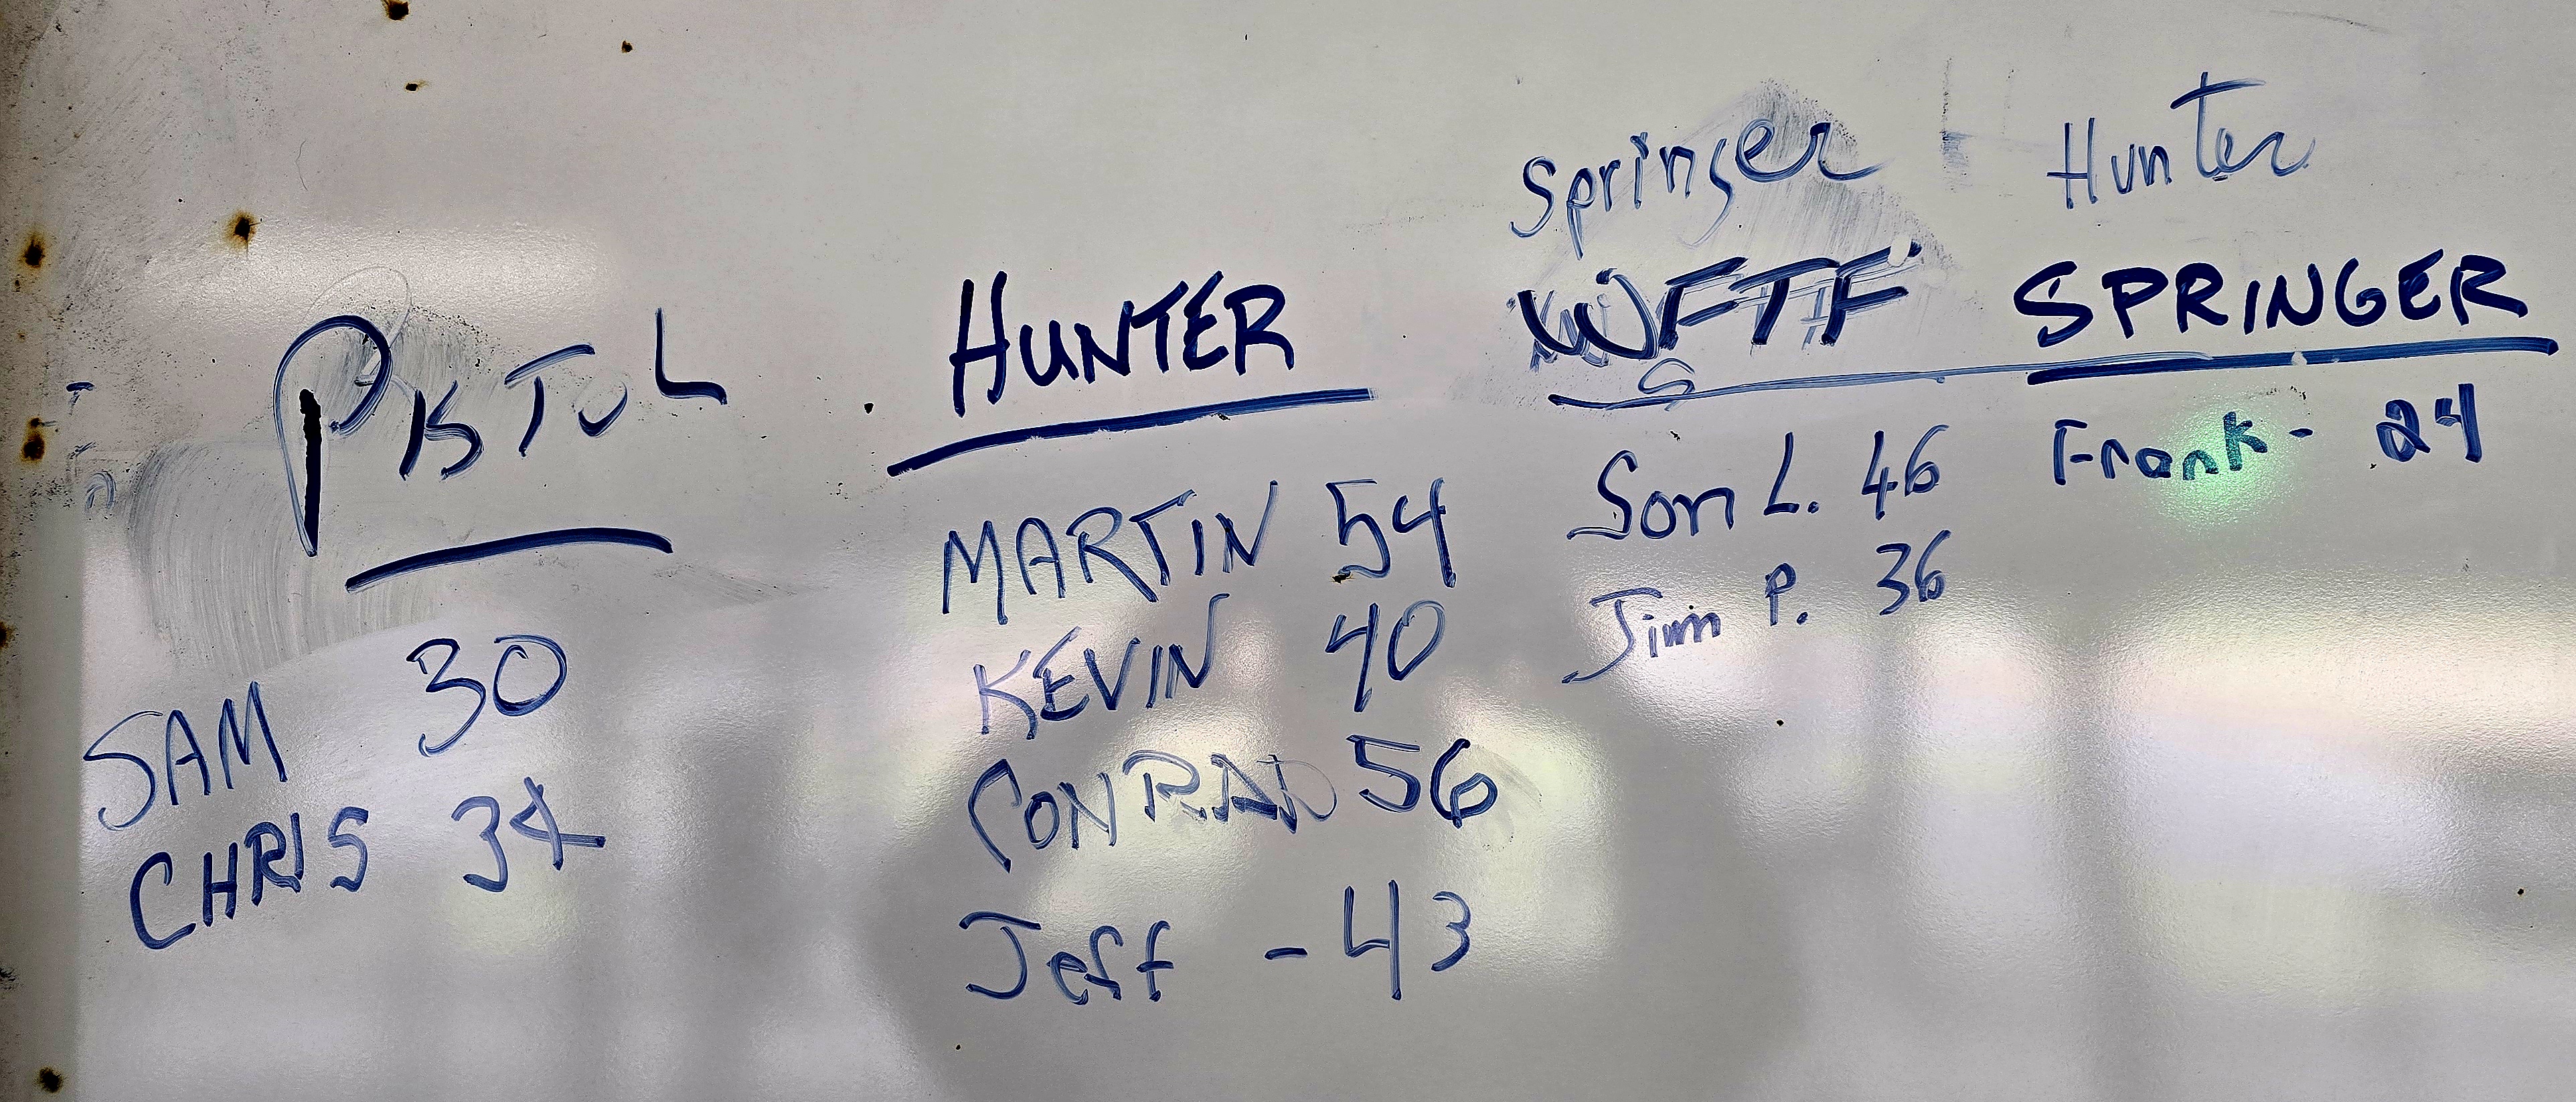 PISTOL
SAM 30
CHRIS 34
HUNTER
MARTIN 54
KEVIN 40
CONRAD 56
Jeff - 43
Springer
WFTF
Son L. 46
Jim P. 36
Hunter
SPRINGER
Frank - 24